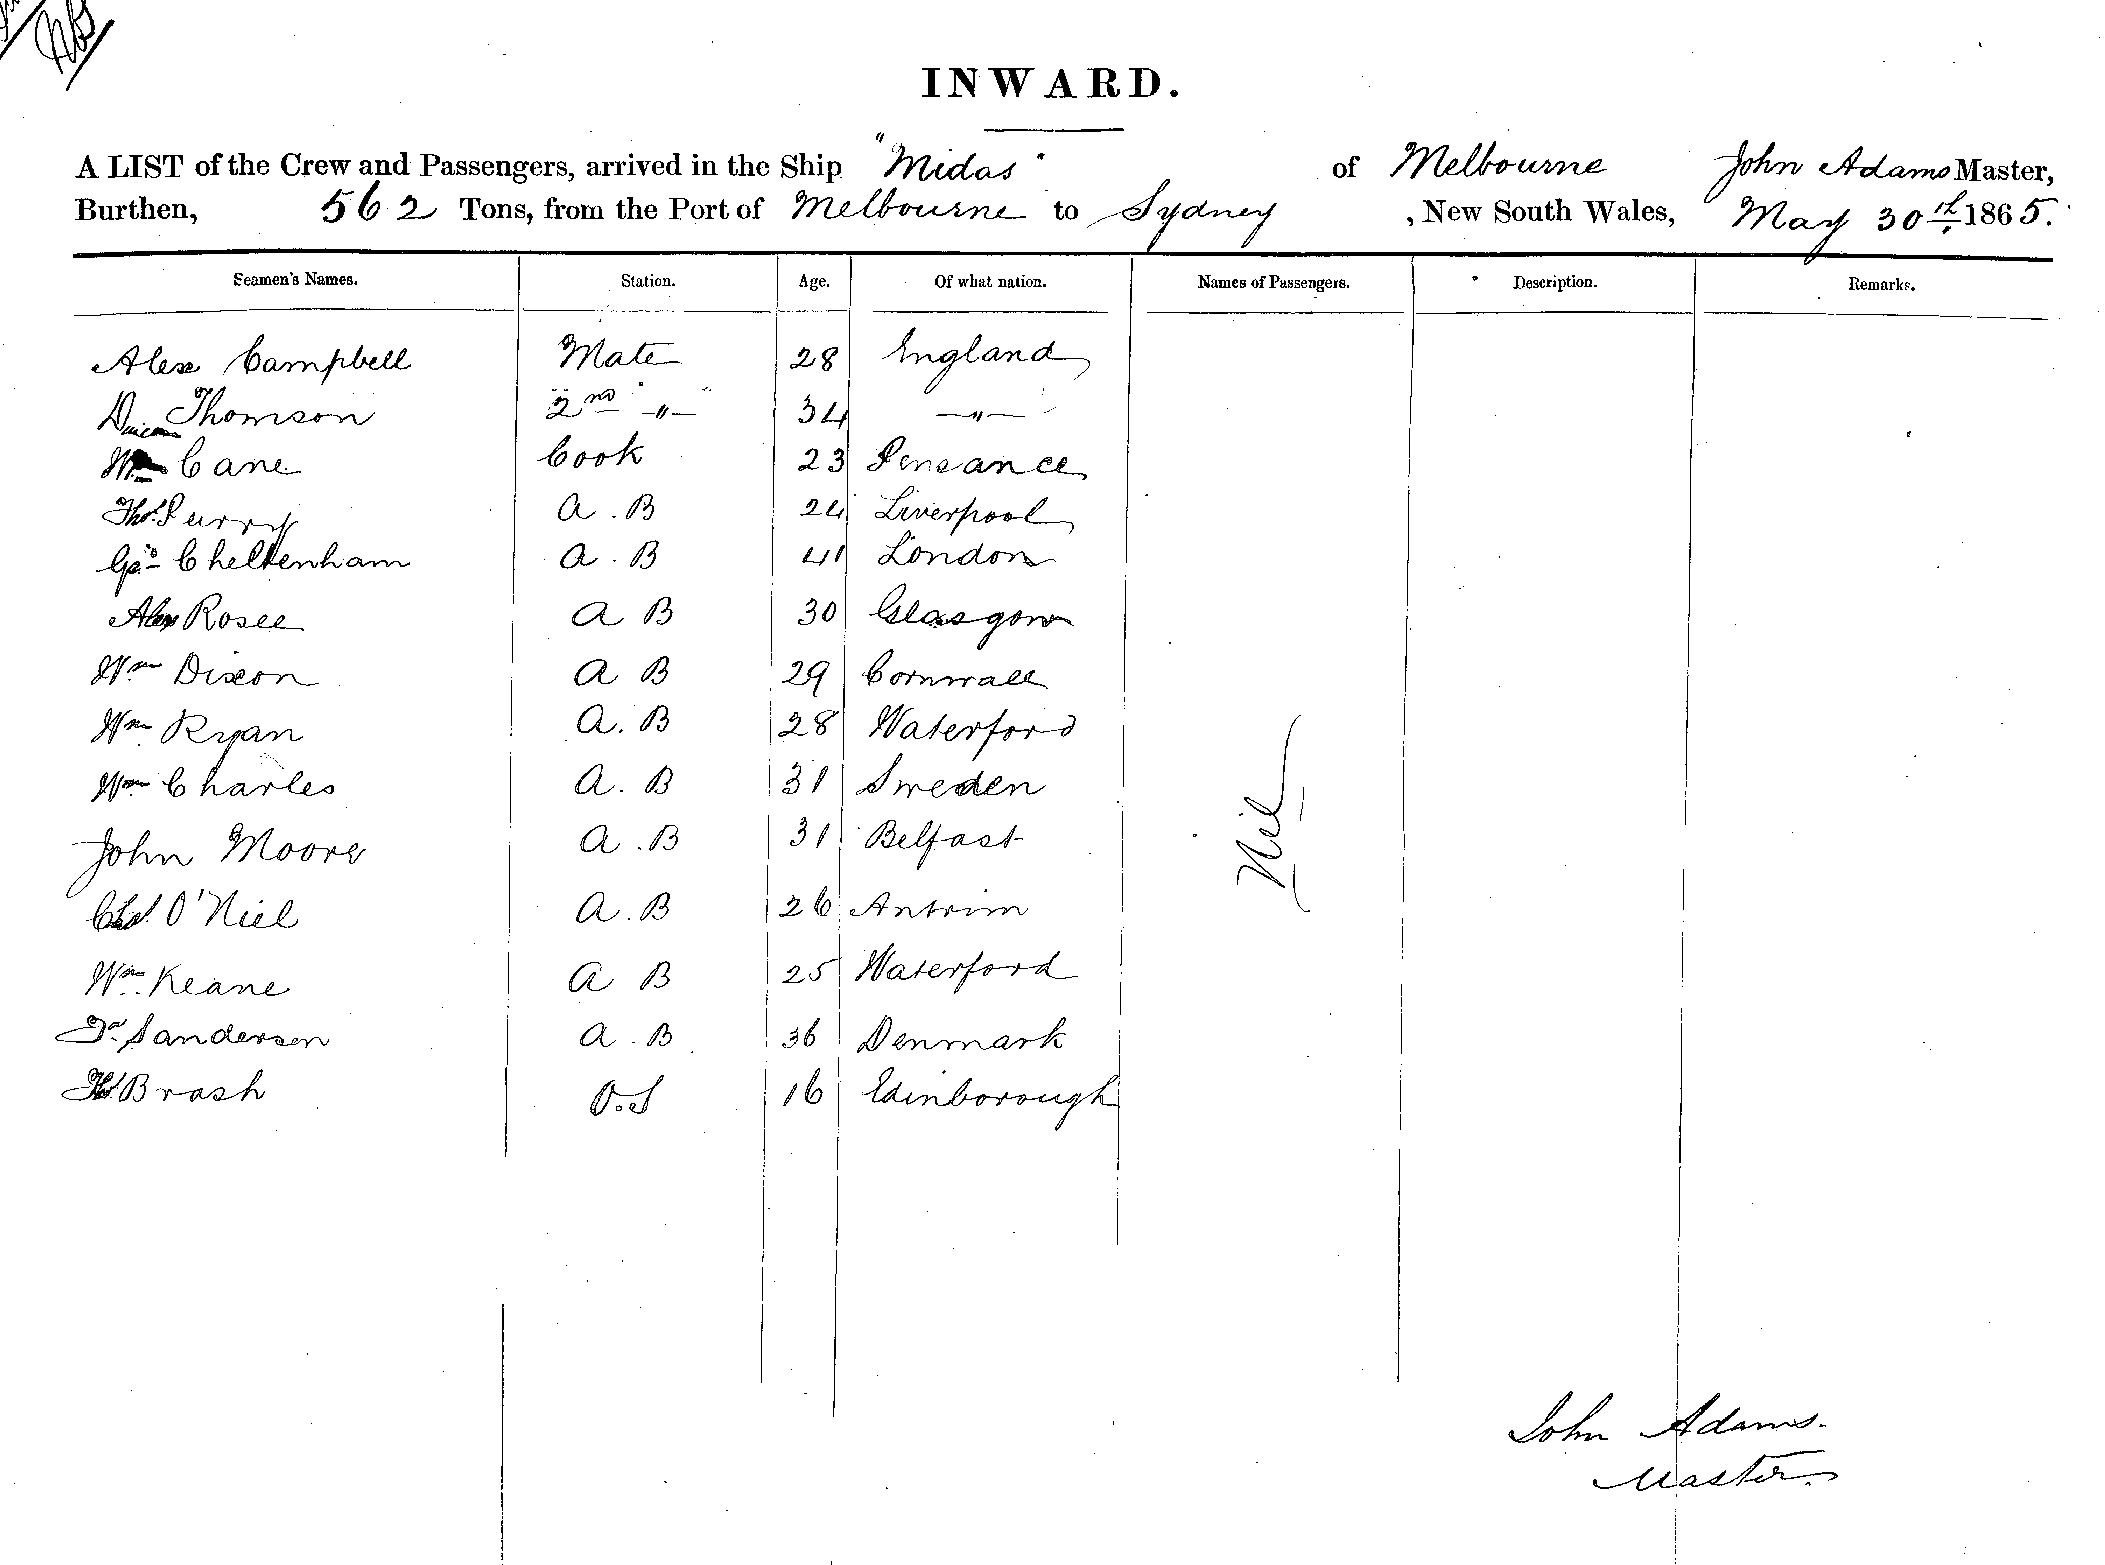 INWARD.
A LIST of the Crew and Passengers, arrived in the Ship "Midas" of Melbourne John Adams Master,
Burthen, 562 Tons, from the Port of Melbourne to Sydney , New South Wales, May 30th 1865.
Seamen's Names. Station. Age. Of what nation. Names of Passengers. Description. Remarks.
Alex Campbell Mate 28 England
Duncan Thomson 2nd -"- 34 -"-
Wm Cane Cook 23 Pensance
Thos. Purry A.B 24 Liverpool
Geo Cheltenham A.B 41 London
Alex Rosee A B 30 Glasgow
Wm Dixon A B 29 Cornwall
Wm Ryan A.B 28 Waterford
Wm Charles A.B 31 Sweden
John Moore A.B 31 Belfast
Nil
Chas. O'Niel A.B 26 Antrim
Wm Keane A B 25 Waterford
Sandersen A.B 36 Denmark
Brash O.S 16 Edinborough
John Adams.
Master.